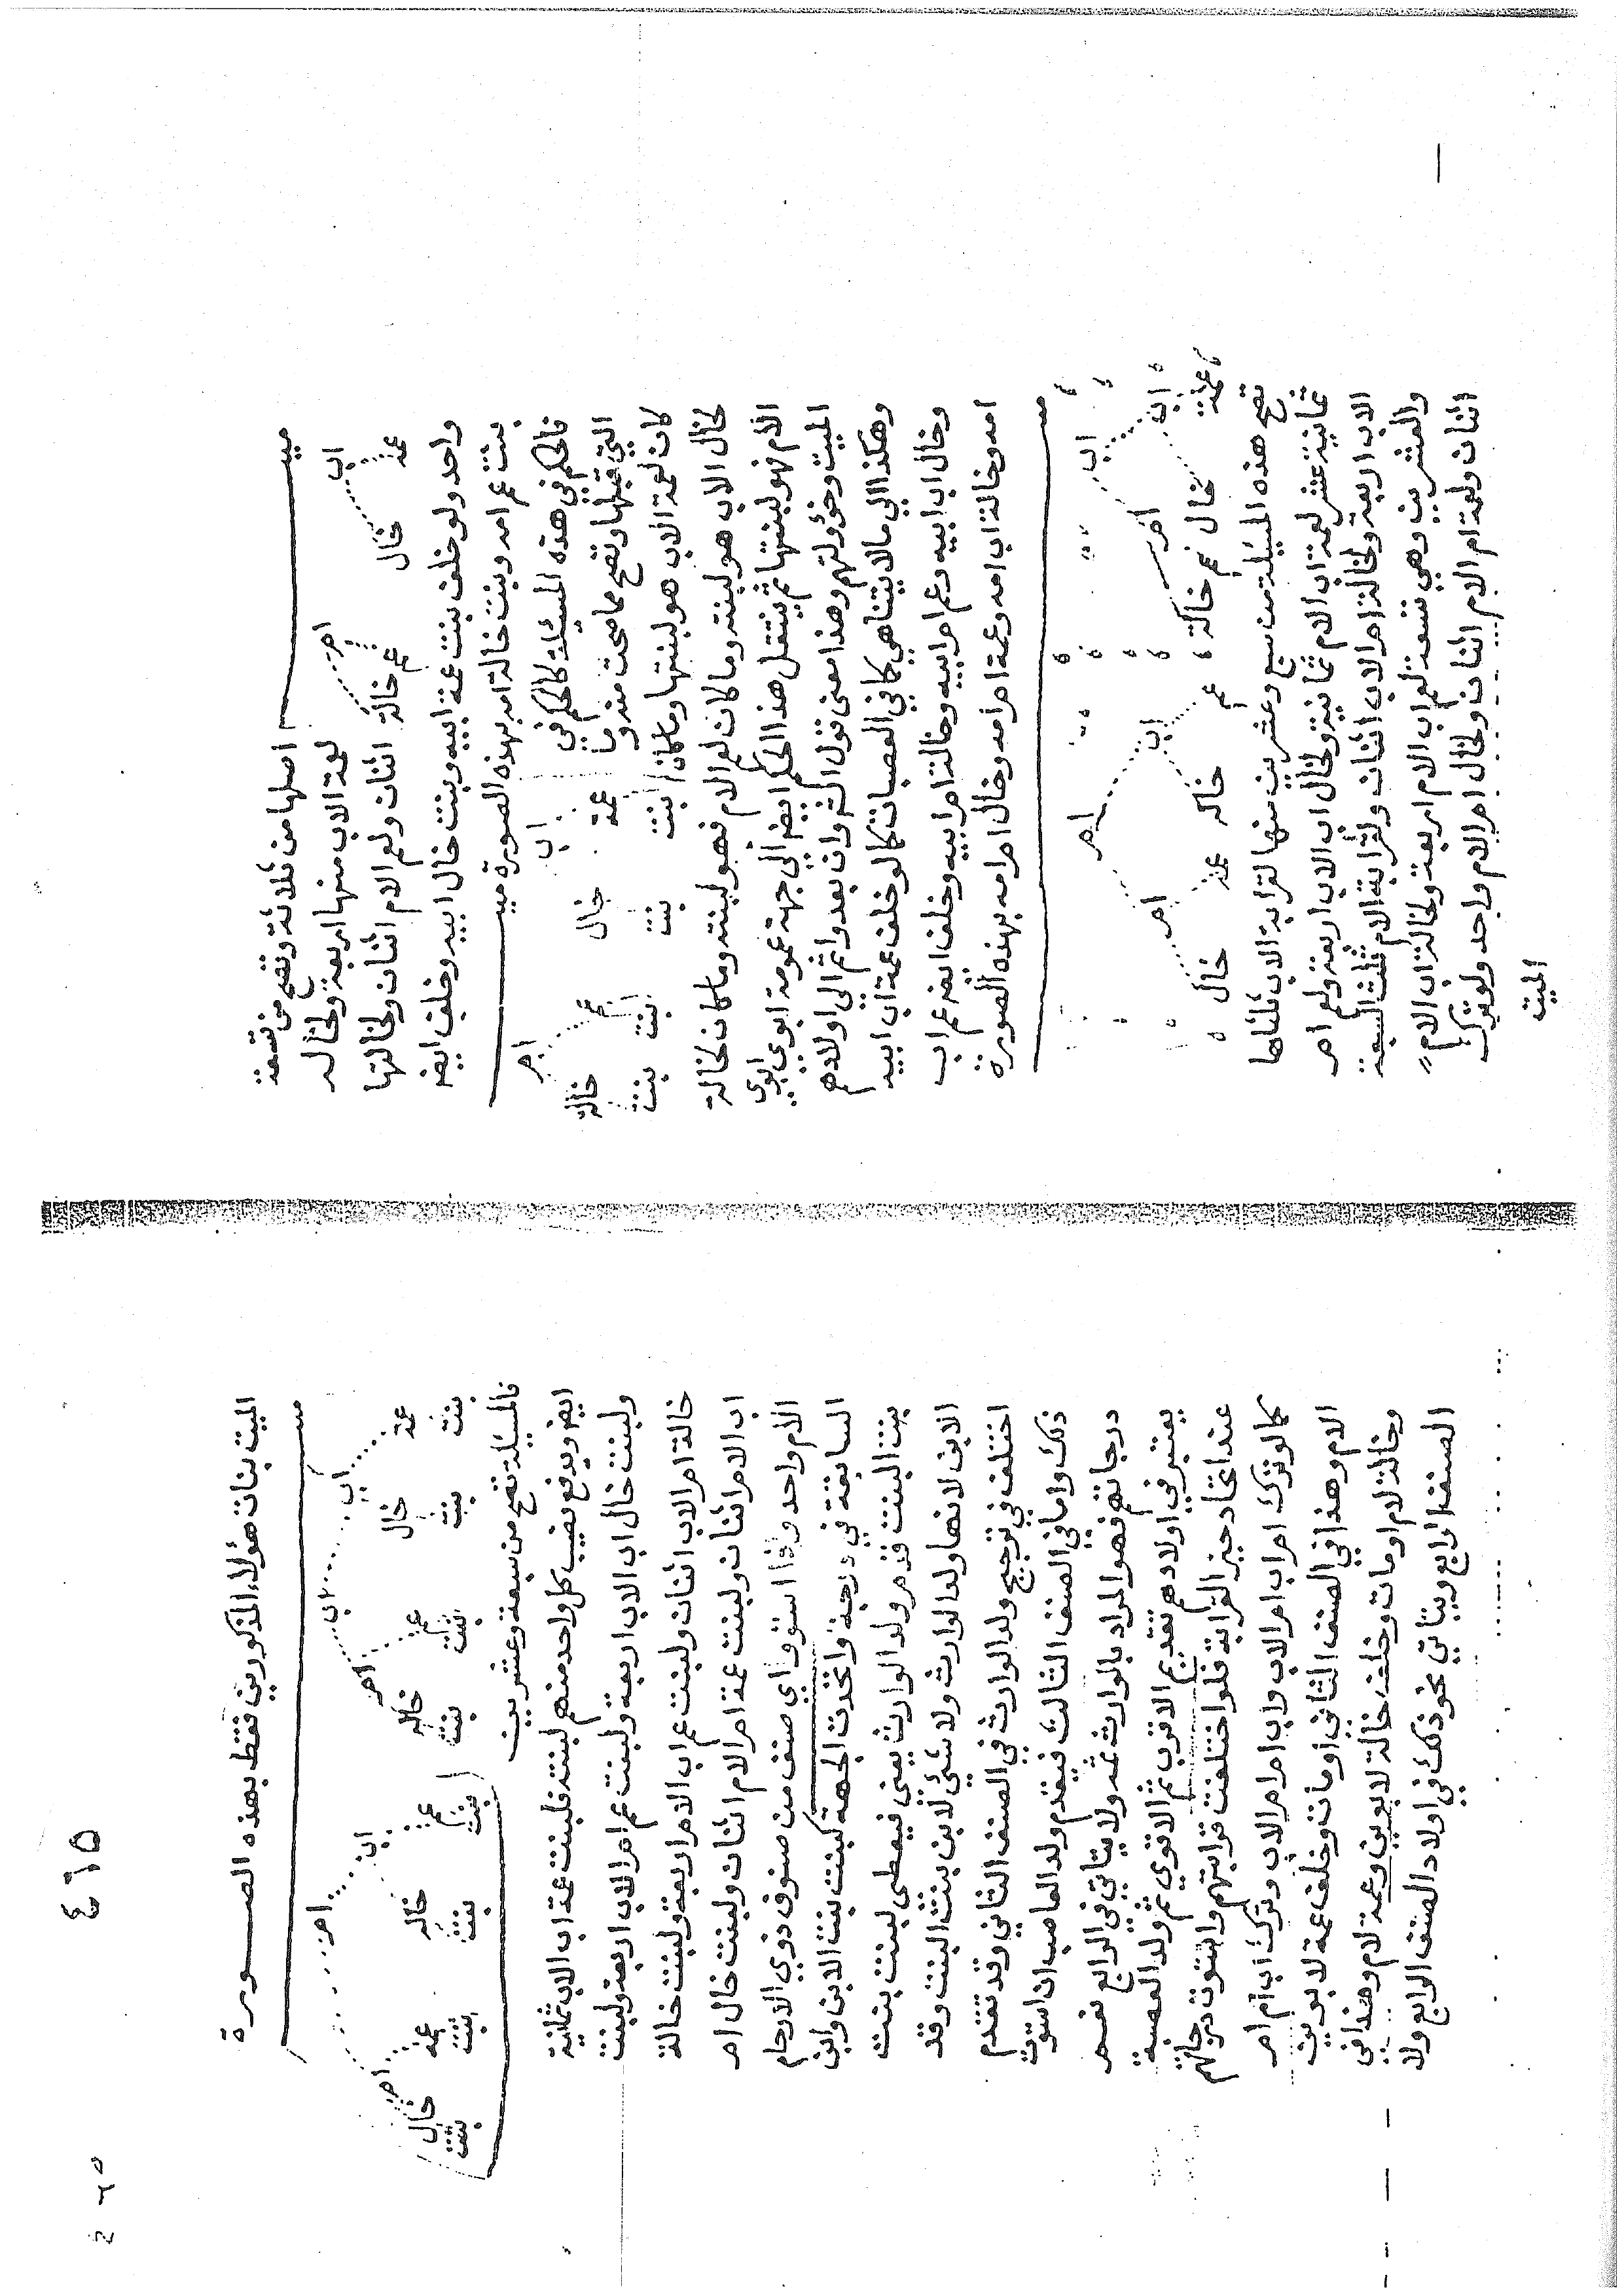 ميـــــت
اصلها من ثلاثة وتصح من تسعة
اب ام
لعمة الاب منها اربعة ولخاله
عمة خال عم خالة
اثنان ولعم الام اثنان ولخالتها
واحد ولو خلف بنت عمة ابيه وبنت خال ابيه وخلف ايضه
بنت عم امه وبنت خالة امه بهذه الصورة ميـــــت
فالحكم في هذه المسئلة كالحكم في
اب ام
التي قبلها وتصح مما صحت منه وما
عمة خال عم خالة
كان لعمة الاب هو لبنتها وما كان
بنت بنت بنت بنت
لخال الاب هو لبنته وما كان لعم الام فهو لبنته وما كان لخالة
الام فهو لبنتها ثم ينتقل هذا الحكم ايضه الي جهة عمومة ابوي ابوي
الميت وخؤولتهم وهذا معنى قول الشـ وان بعدوا ثم الى اولادهم
وهكذا الي ما لا يتناهي كما في العصبات كما لو خلف عمة اب ابيه
وخال اب ابيه وعم ام ابيه وخالة ام ابيه وخلف ايضه عم اب
امه وخالة اب امه وعمة ام امه وخال ام امه بهذه الصورة
اب ام
اب ام اب ام
عمة خال عم خالة عم خاله عمة خال
تصح هذه المسئلة من سبع وعشرين منها لقرابة الاب ثلثاها
ثمانية عشر لعمة اب الاب ثمانية ولخال اب الاب اربعة ولعم ام
الاب اربعة ولخالة ام الاب اثنان ولقرابة الام ثلث السبعة
والعشرين وهي تسعة لعم اب الام اربعة ولخالة اب الام
اثنان ولعمة ام الام اثنان ولخال ام الام واحد ولو ترك
الميت
٤٦٥
الميت بنات هؤلاء المذكورين فقط بهذه الصـــورة
اب ام
اب ام اب ام
عمة خال عم خاله عم خاله عمة خال
بنت بنت بنت بنت بنت بنت بنت بنت
فالمسئلة تصح من سبعة وعشرين
ايضه ويدفع نصيب كل واحد منهم لبنته فلبنت عمة اب الاب ثمانية
ولبنت خال اب الاب اربعة ولبنت عم ام الاب اربعة ولبنت
خالة ام الاب اثنان ولبنت عم اب الام اربعة ولبنت خالة
اب الام اثنان ولبنت عمة ام الام اثنان ولبنت خال ام
الام واحد واذا استووا في صنف من صنوف ذوي الارحام
السابقة في درجة واتحدت الجهة كبنت بنت الابن وابن
بنت البنت قدم ولد الوارث يعنى فيعطى لبنت بنت
الابن لانها ولد الوارث ولا شئ لابن بنت البنت وقد
اختلف في ترجيح ولد الوارث في الصنف الثاني وقد تقدم
ذلك واما في الصنف الثالث فيقدم ولد العاصب ان استوت
درجاتهم فهو المراد بالوارث ثمه ولا يتاتي في الرابع نعم
يعتبر في اولادهم تقديم الاقرب ثم الاقوي ثم ولد العصبة
عند اتحاد حيز القرابة فلو اختلفت قرابتهم واستوت درجاتهم
كما لو ترك ام اب ام الاب واب ام ام الاب وترك اب ام ام
الام وهذا في الصنف الثاني او مات وخلف عمة لابوين
وخالة لام او مات وخلف خالة لابوين وعمة لام وهذا في
الصنف الرابع ويتاتي نحو ذلك في اولاد الصنف الرابع ولا